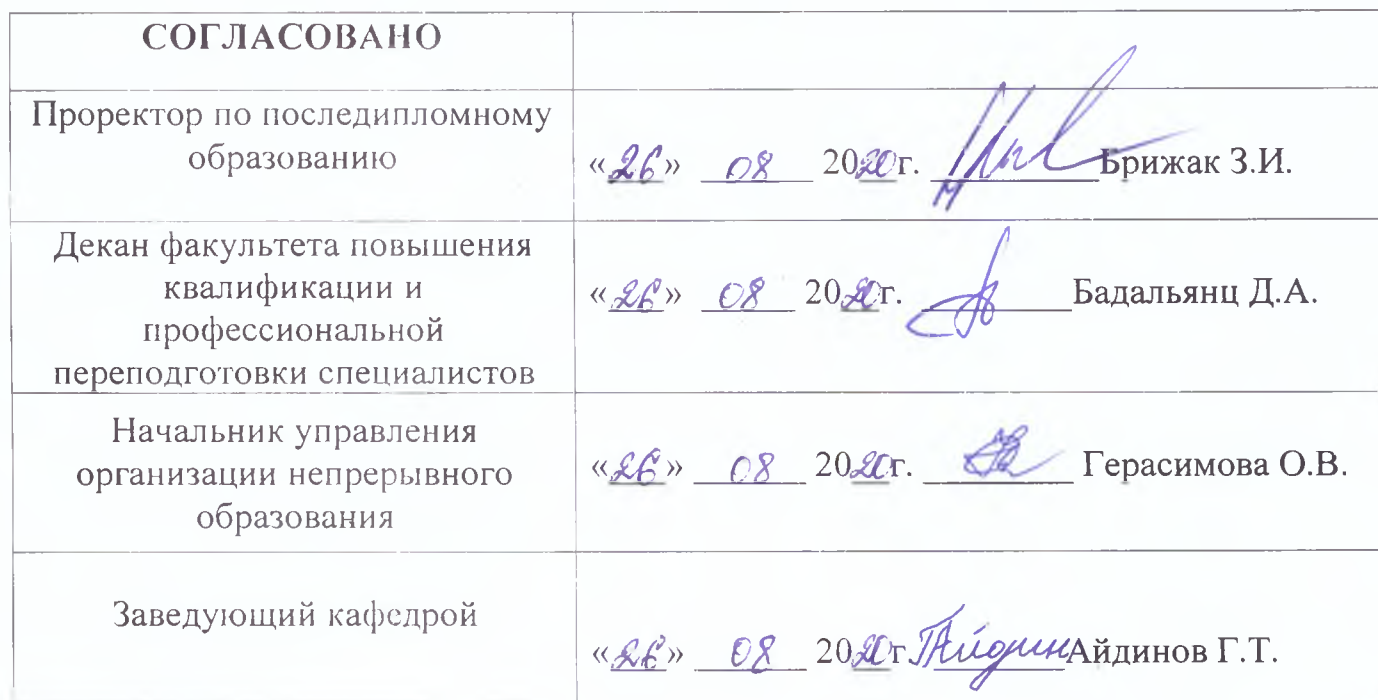 СОГЛАСОВАНО
Проректор по последипломному
образованию
«26» 08 2020г. Брижак З.И.
Декан факультета повышения
квалификации и
профессиональной
переподготовки специалистов
«26» 08 2020г. Бадальянц Д.А.
Начальник управления
организации непрерывного
образования
«26» 08 2020г. Герасимова О.В.
Заведующий кафедрой
«26» 08 2020г Айдинов Г.Т.